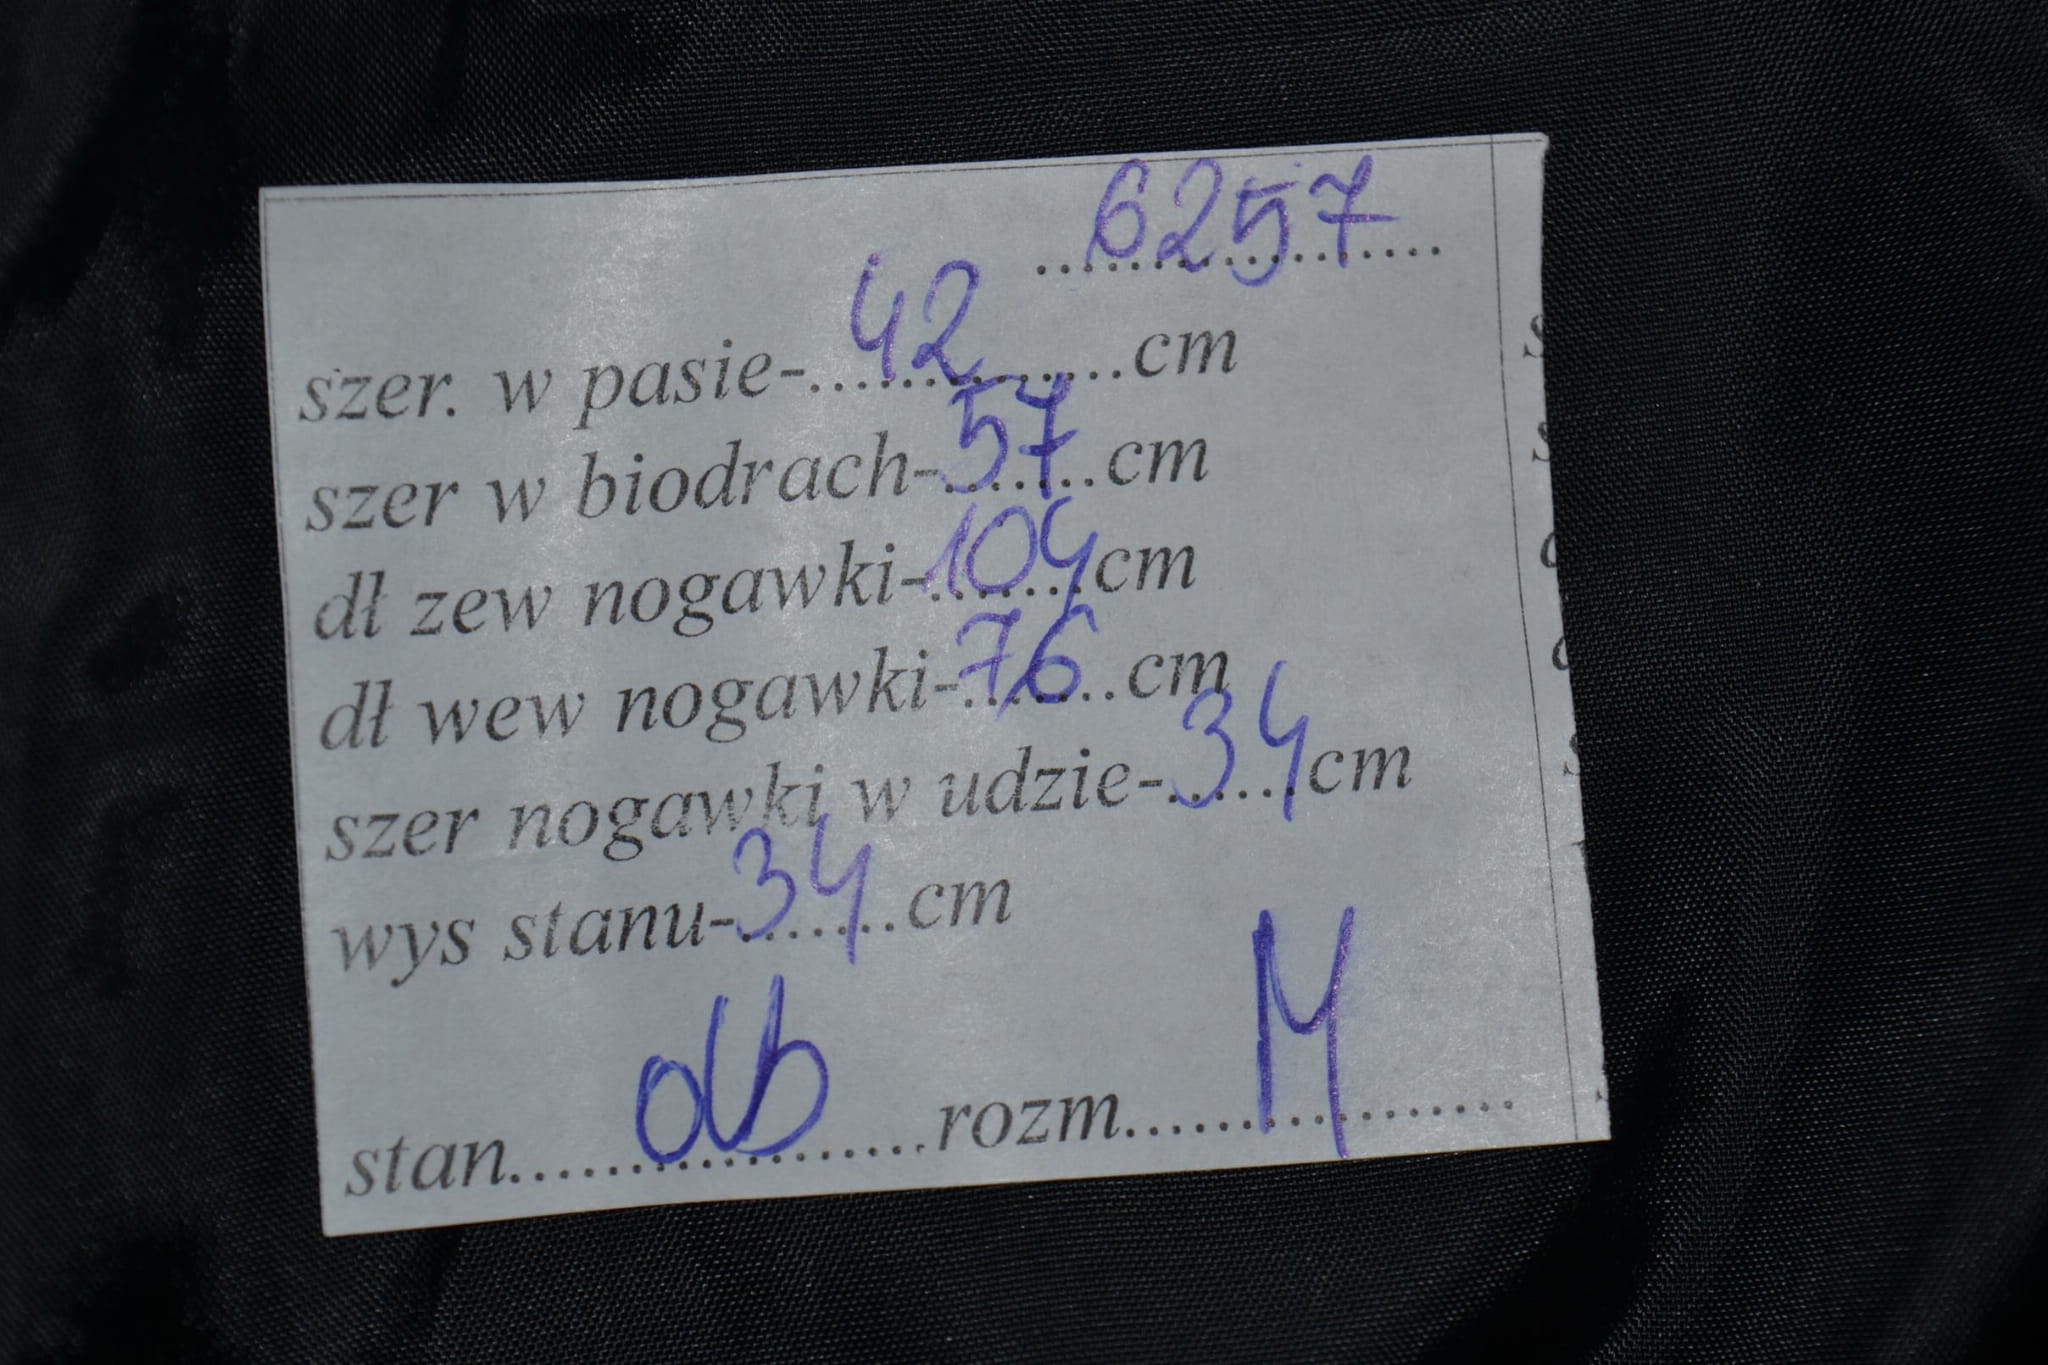 6257
szer. w pasie-42cm
szer w biodrach-57cm
dł zew nogawki-104cm
dł wew nogawki-76cm
szer nogawki w udzie-34cm
wys stanu-34cm
stan.......rozm.......M